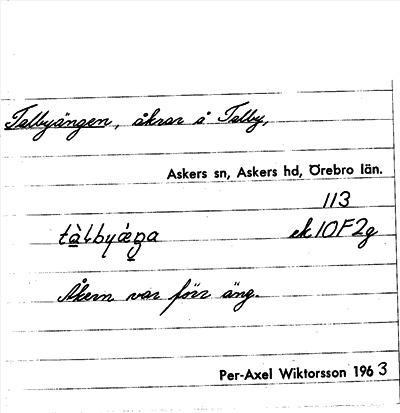 Talbyängen, åkrar å Talby,
Askers sn, Askers hd, Örebro län.
113
tàlbyæ̀ŋa ek 10F2g
Åkern var förr äng.
Per-Axel Wiktorsson 1963